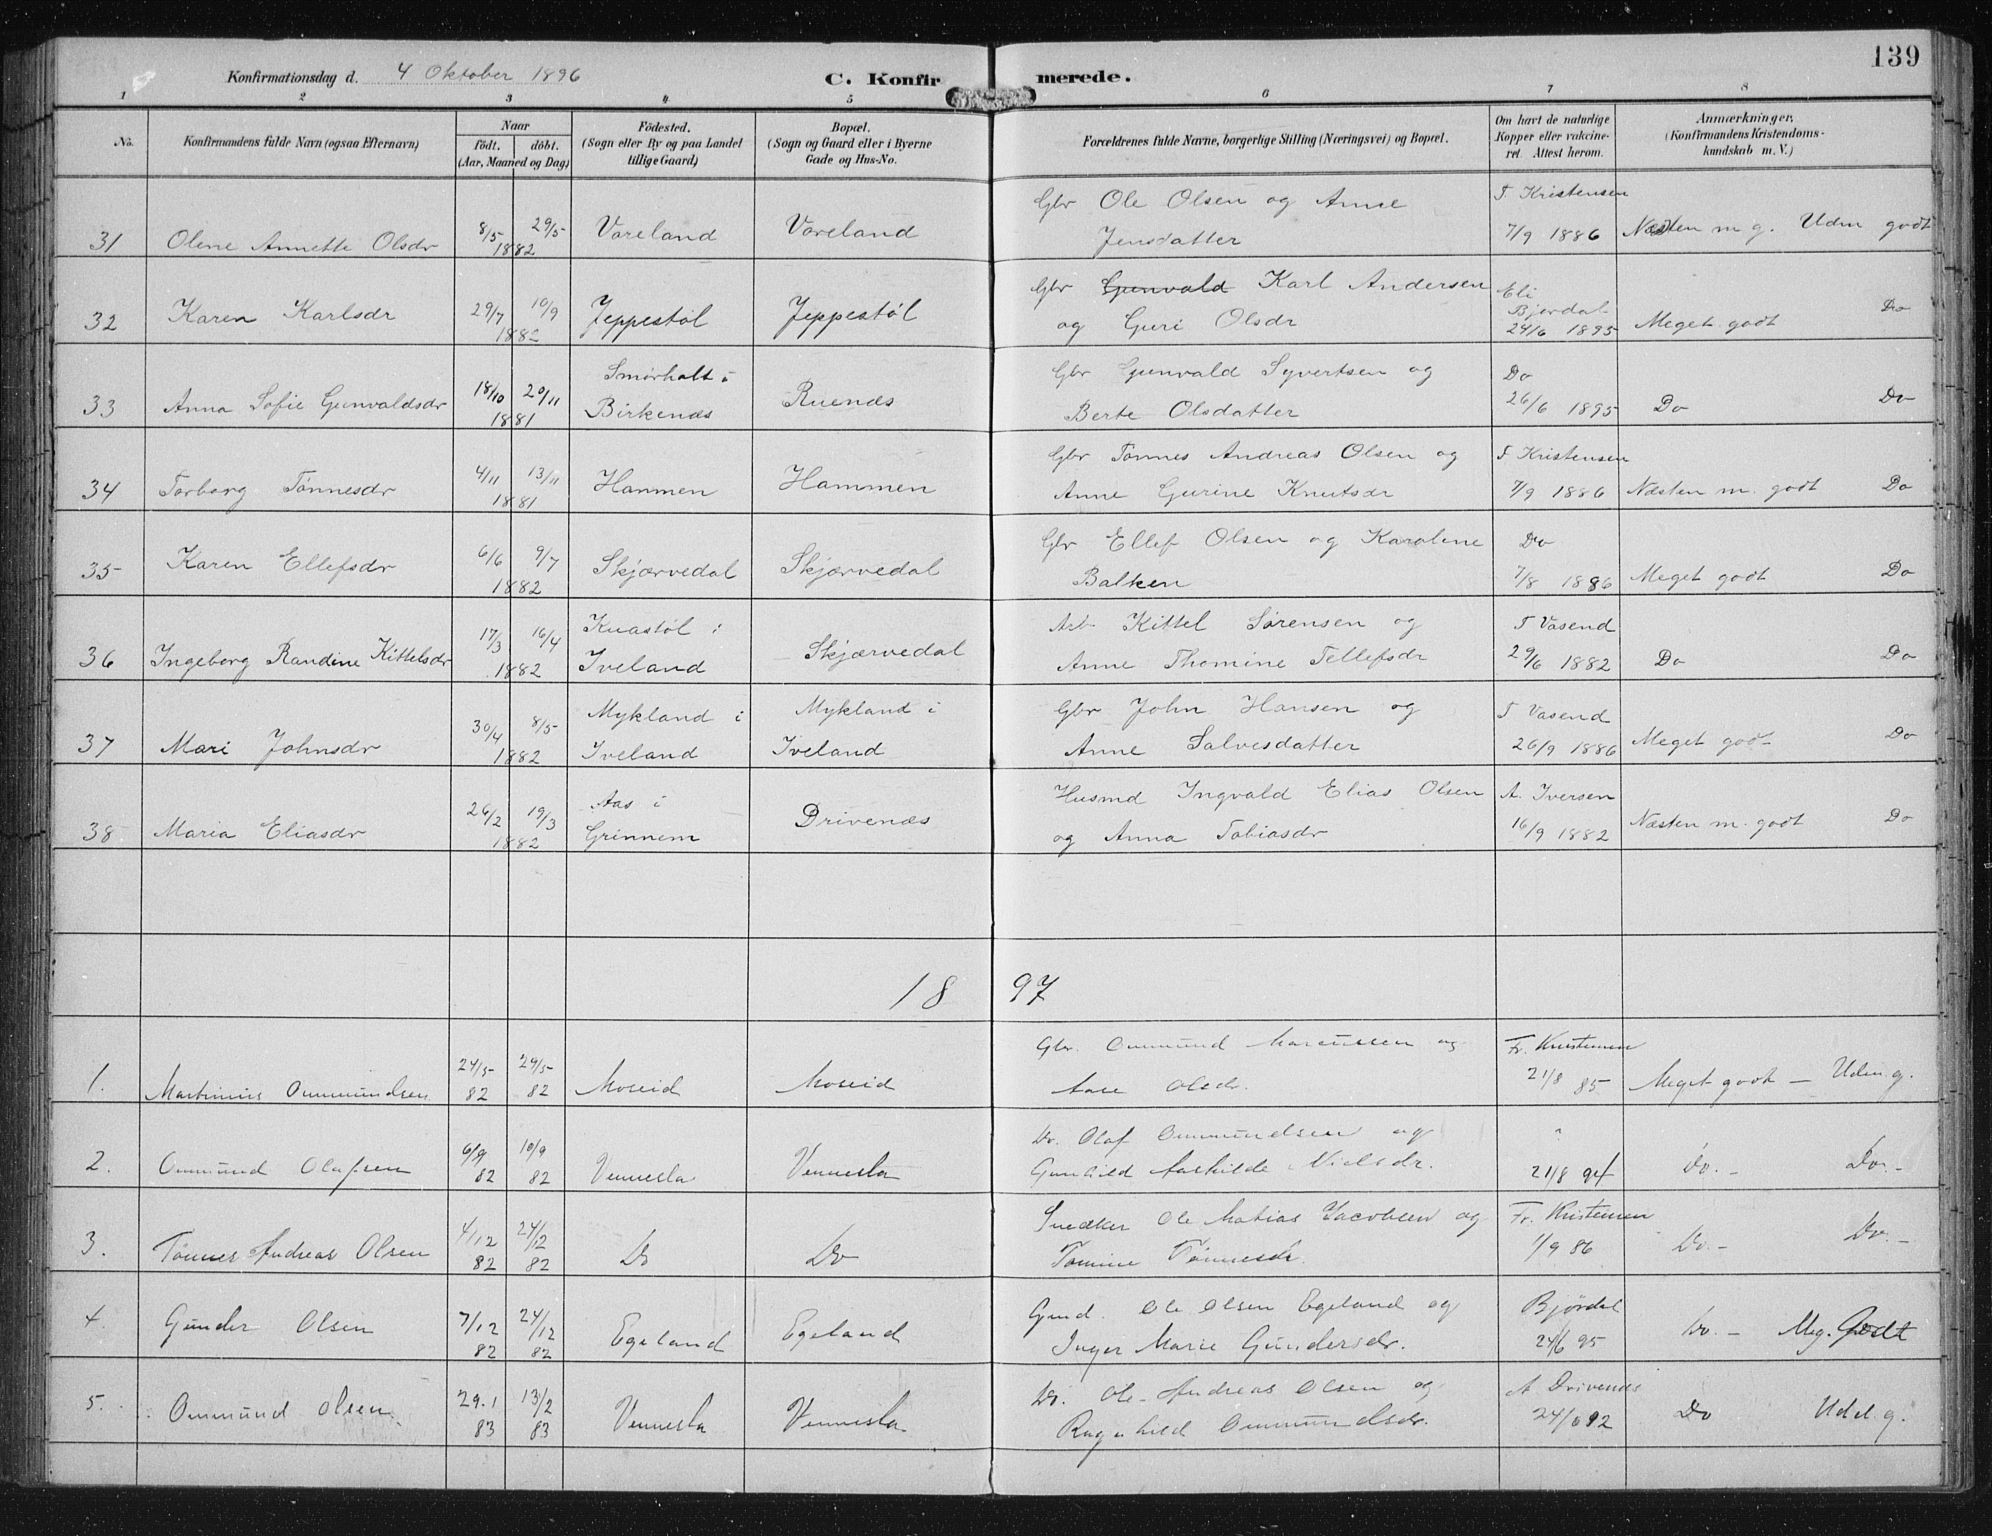 139
Konfirmationsdag d. 4 Oktober 1896
C. Konfirmerede.
1 2 3 4 5 6 7 8
No.
Konfirmandens fulde Navn (ogsaa Efternavn)
Naar
födt. döbt.
(Aar, Maaned og Dag)
Födested.
(Sogn eller By og paa Landet
tillige Gaard)
Bopæl.
(Sogn og Gaard eller i Byerne
Gade og Hus-No.
Forældrenes fulde Navne, borgerlige Stilling (Næringsvei) og Bopæl.
Om havt de naturlige
Kopper eller vakcine-
ret. Attest herom.
Anmærkninger,
(Konfirmandens Kristendoms-
kundskab m. V.)
Gbr Ole Olsen og Anne T Kristensen
31 Olene Annette Olsdr 8/5 29/5 Vareland Vareland Jensdatter 7/9 1886 Næsten m g. Uden godt
1882
32 Karen Karlsdr 29/7 10/9 Jeppestøl Jeppestøl Gbr Gunvald Karl Andersen Eli
Bjørdal
188 og Guri Olsdr 24/6 1895 Meget godt Do
Smørholt i Gbr Gunvald Syvertsen og Do
33 Anna Sofie Gunvaldsdr 18/10 20/11 Birkenæs Ruenæs Berte Olsdatter 26/6 1895 Do Do
1881
Gbr Tønnes Andreas Olsen og T Kristensen
34 Torborg Tønnesdr 4/11 13/11 Hammen Hammen Anne Gurine Knutsdr 7/9 1886 Næsten m. godt Do
1881
Gbr Ellef Olsen og Karoline Do
35 Karen Ellefsdr 6/6 9/7 Skjærvedal Skjærvedal Balken 7/8 1886 Meget godt Do
1882
Knastøl i Arb Kittel Sørensen og T Vasend
36 Ingeborg Randine Kittelsdr 17/3 16/4 Iveland Skjærvedal Anne Thomine Tellefsdr 29/6 1882 Do Do
1882
Mykland i Mykland i Gbr John Hansen og T Vasend
37 Mari Johnsdr 30/4 8/5 Iveland Iveland Anne Salvesdatter 26/9 1886 Meget god Do
1882
Aas i Husmd Ingvald Elias Olsen A. Iversen
38 Maria Eliasdr 26/2 19/3 Grinnem Drivenæs og Anna Tobiasdr 16/9 1882 Næsten m. godt Do
1882
18 97
Gbr. Ommund Marcussen og Fr. Kristensen
1. Martinius Ommundsen 24/5 29/5 Moseid Moseid Aase Olsdr. 21/8 85 Meget godt — Uden g.
82 82
Do. Olaf Ommundsen og "
2. Ommund Olafsen 6/9 10/9 Vennesla Vennesla Gunhild Aashilde Nielsdr. 21/8 94 Do. — Do. —
82 82
Snedker Ole Matias Jacobsen og Fr. Kristensen
3. Tønnes Andreas Olsen 4/12 24/12 Do Do Tomine Tønnesdr. 1/9 86 Do. — Do. —
82 82
Gmd. Ole Olsen Egeland og Bjørdal
4. Gunder Olsen 7/12 24/12 Egeland Egeland Inger Marie Gundersdr. 24/6 95 Do. — Meg. Godt
82 82
Do. Ole Andreas Olsen og A Drivenes
5. Ommund Olsen 29.1 13/2 Vennesla Vennesla Ragnhild Ommundsdr. 24/6 92 Do Ud.g.
83 83